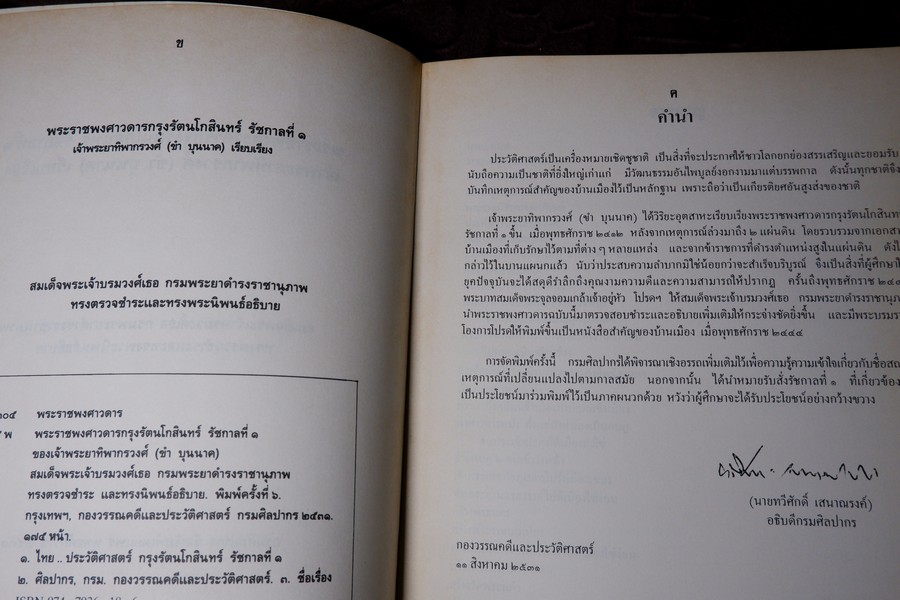 ข
พระราชพงศาวดารกรุงรัตนโกสินทร์ รัชกาลที่ ๑
เจ้าพระยาทิพากรวงศ์ (ขำ บุนนาค) เรียบเรียง
สมเด็จพระเจ้าบรมวงศ์เธอ กรมพระยาดำรงราชานุภาพ
ทรงตรวจชำระและทรงพระนิพนธ์อธิบาย
๒๐๔ พระราชพงศาวดาร
พ พระราชพงศาวดารกรุงรัตนโกสินทร์ รัชกาลที่ ๑
ของเจ้าพระยาทิพากรวงศ์ (ขำ บุนนาค)
สมเด็จพระเจ้าบรมวงศ์เธอ กรมพระยาดำรงราชานุภาพ
ทรงตรวจชำระ และทรงนิพนธ์อธิบาย. พิมพ์ครั้งที่ ๖.
กรุงเทพฯ, กองวรรณคดีและประวัติศาสตร์ กรมศิลปากร ๒๕๓๑.
๑๗๔ หน้า.
๑. ไทย .. ประวัติศาสตร์ กรุงรัตนโกสินทร์ รัชกาลที่ ๑
๒. ศิลปากร, กรม. กองวรรณคดีและประวัติศาสตร์. ๓. ชื่อเรื่อง
ค
คำนำ
ประวัติศาสตร์เป็นเครื่องหมายเชิดชูชาติ เป็นสิ่งที่จะประกาศให้ชาวโลกยกย่องสรรเสริญและยอมรับ
นับถือความเป็นชาติที่ยิ่งใหญ่เก่าแก่ มีวัฒนธรรมอันไพบูลย์งอกงามมาแต่บรรพกาล ดังนั้นทุกชาติจึง
บันทึกเหตุการณ์สำคัญของบ้านเมืองไว้เป็นหลักฐาน เพราะถือว่าเป็นเกียรติยศอันสูงส่งของชาติ
เจ้าพระยาทิพากรวงศ์ (ขำ บุนนาค) ได้วิริยะอุตสาหะเรียบเรียงพระราชพงศาวดารกรุงรัตนโกสินทร์
รัชกาลที่ ๑ ขึ้น เมื่อพุทธศักราช ๒๔๑๒ หลังจากเหตุการณ์ล่วงมาถึง ๒ แผ่นดิน โดยรวบรวมจากเอกสา
บ้านเมืองที่เก็บรักษาไว้ตามที่ต่าง ๆ หลายแหล่ง และจากข้าราชการที่ดำรงตำแหน่งสูงในแผ่นดิน ดัง
กล่าวไว้ในบานแผนกแล้ว นับว่าประสบความลำบากมิใช่น้อยกว่าจะสำเร็จบริบูรณ์ จึงเป็นสิ่งที่ผู้ศึกษา
ยุคปัจจุบันจะได้สดุดีรำลึกถึงคุณงามความดีและความสามารถให้ปรากฏ ครั้นถึงพุทธศักราช
พระบาทสมเด็จพระจุลจอมเกล้าเจ้าอยู่หัว โปรดฯ ให้สมเด็จพระเจ้าบรมวงศ์เธอ กรมพระยาดำรงราชานุภา
นำพระราชพงศาวดารฉบับนี้มาตรวจสอบชำระและอธิบายเพิ่มเติมให้กระจ่างชัดยิ่งขึ้น และมีพระบรมรา
โองการโปรดให้พิมพ์ขึ้นเป็นหนังสือสำคัญของบ้านเมือง เมื่อพุทธศักราช ๒๔๔๔
การจัดพิมพ์ครั้งนี้ กรมศิลปากรได้พิจารณาเชิงอรรถเพิ่มเติมไว้เพื่อความรู้ความเข้าใจเกี่ยวกับชื่อสถ
เหตุการณ์ที่เปลี่ยนแปลงไปตามกาลสมัย นอกจากนั้น ได้นำหมายรับสั่งรัชกาลที่ ๑ ที่เกี่ยวข้อง
เป็นประโยชน์มาร่วมพิมพ์ไว้เป็นภาคผนวกด้วย หวังว่าผู้ศึกษาจะได้รับประโยชน์อย่างกว้างขวาง
(นายทวีศักดิ์ เสนาณรงค์)
อธิบดีกรมศิลปากร
กองวรรณคดีและประวัติศาสตร์
๑๑ สิงหาคม ๒๕๓๑